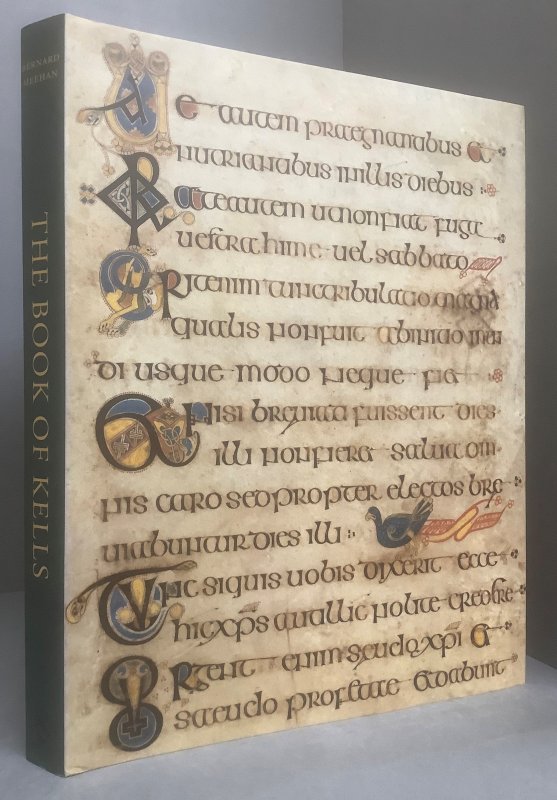 BERNARD
MEEHAN
THE BOOK OF KELLS
Uae autem praegnantibus et
nutrientibus in illis diebus
Orate autem ut non fiat fuga
uestra hime uel sabbato
Erit enim tunc tribulatio magna
qualis non fuit ab initio mun
di usque modo neque fiet
Et nisi breuiati fuissent dies
illi non fieret salua om
nis caro sed propter electos bre
uiabuntur dies illi
Tunc si quis uobis dixerit ecce
hic xps aut illic nolite credere
Surgent enim seudo xpi et
seudo profetae et dabunt